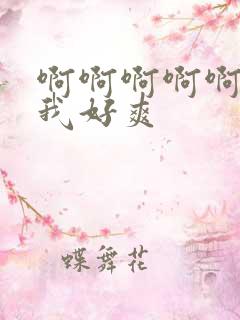 啊啊啊啊啊
我好爽
蝶舞花